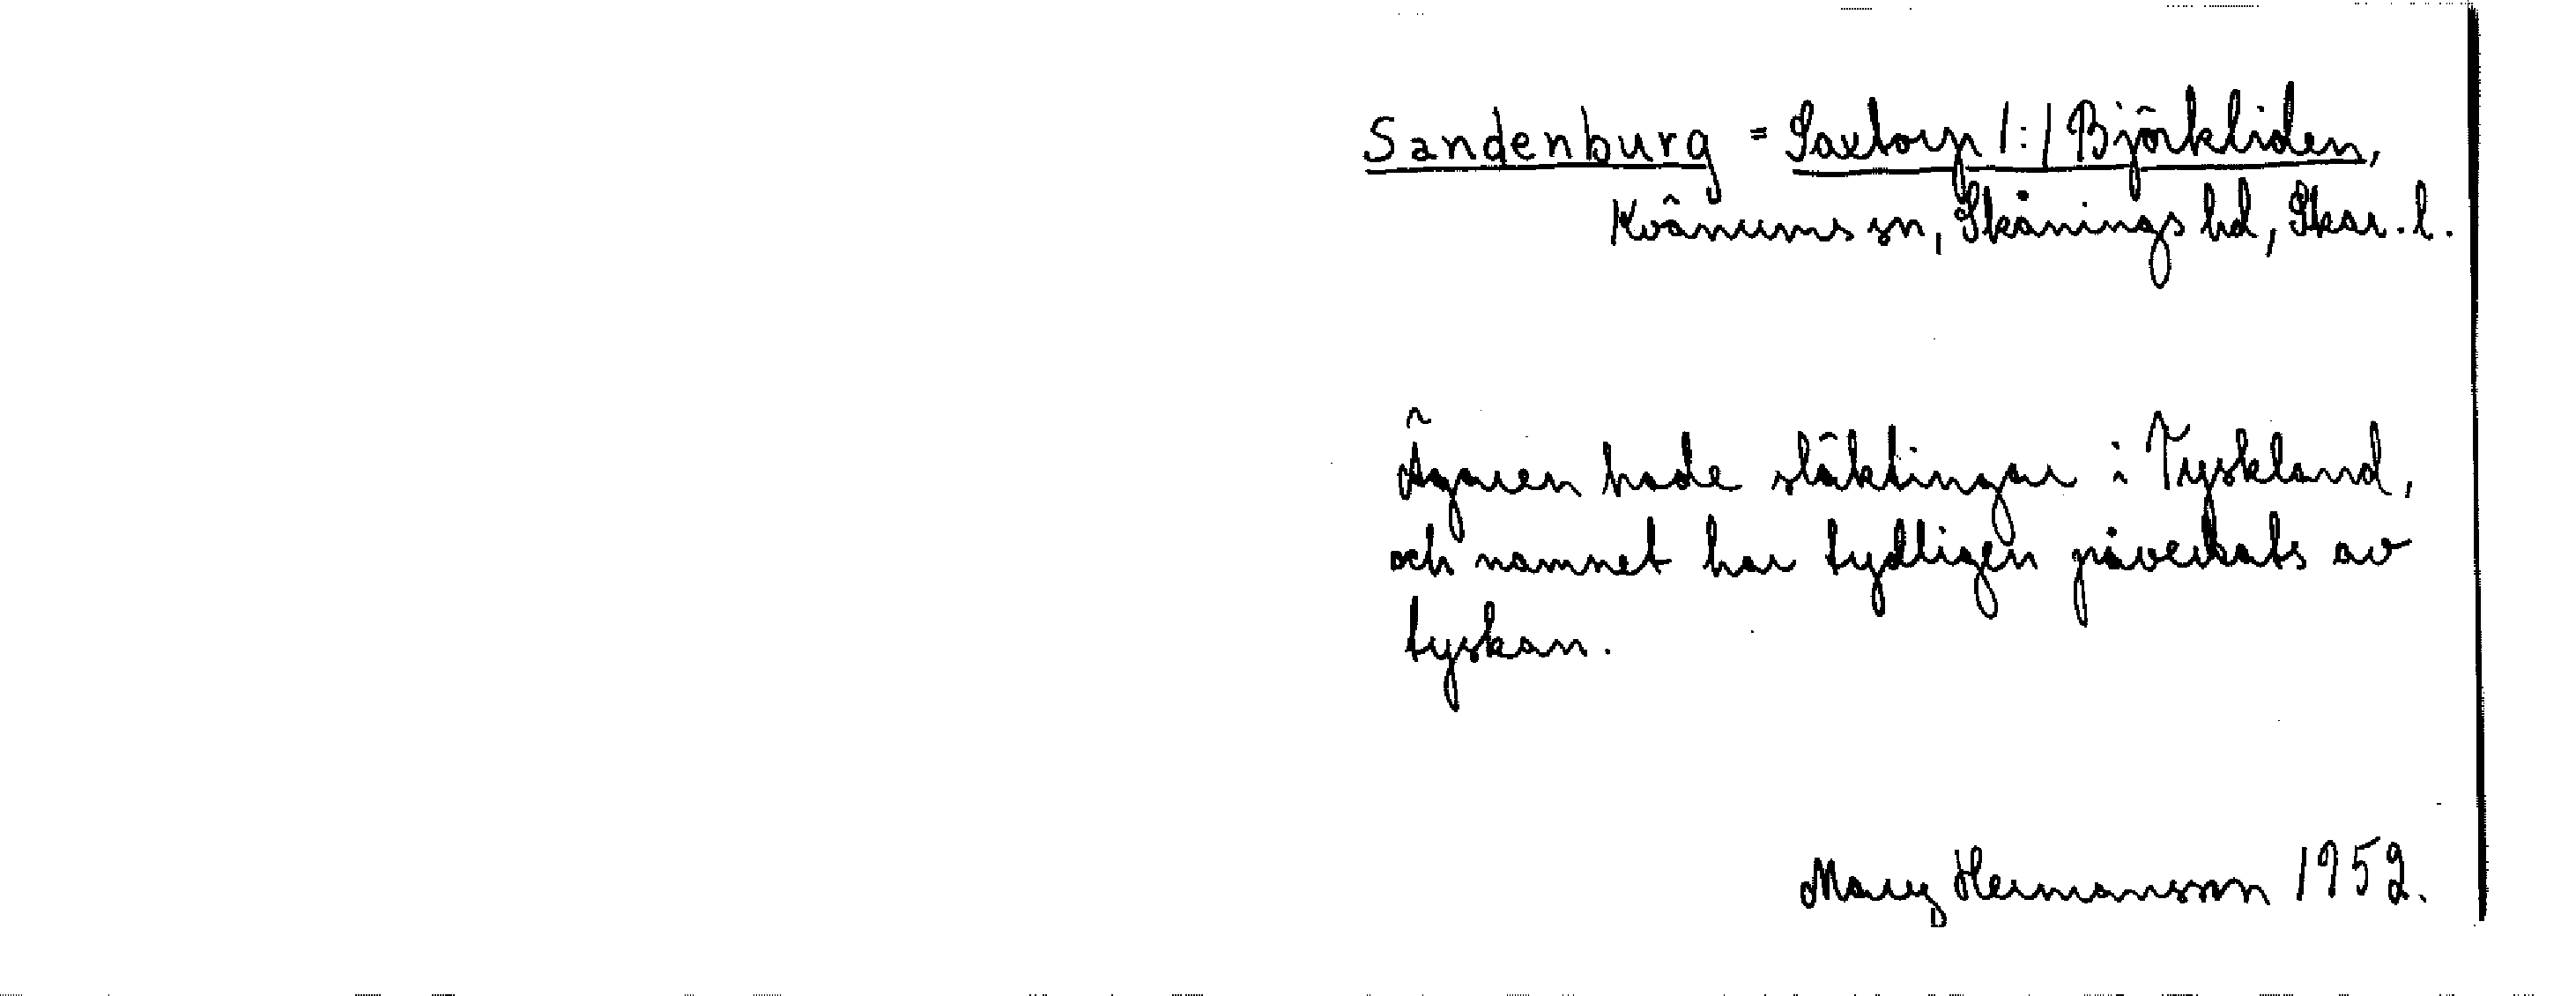 Sandenburg = Saxtorp 1:1 Björkliden,
Kvänums sn, Skånings hd, Skar. l.
Ägaren hade släktingar i Tyskland,
och namnet har tydligen påverkats av
tyskan.
Mary Hermansson 1952.